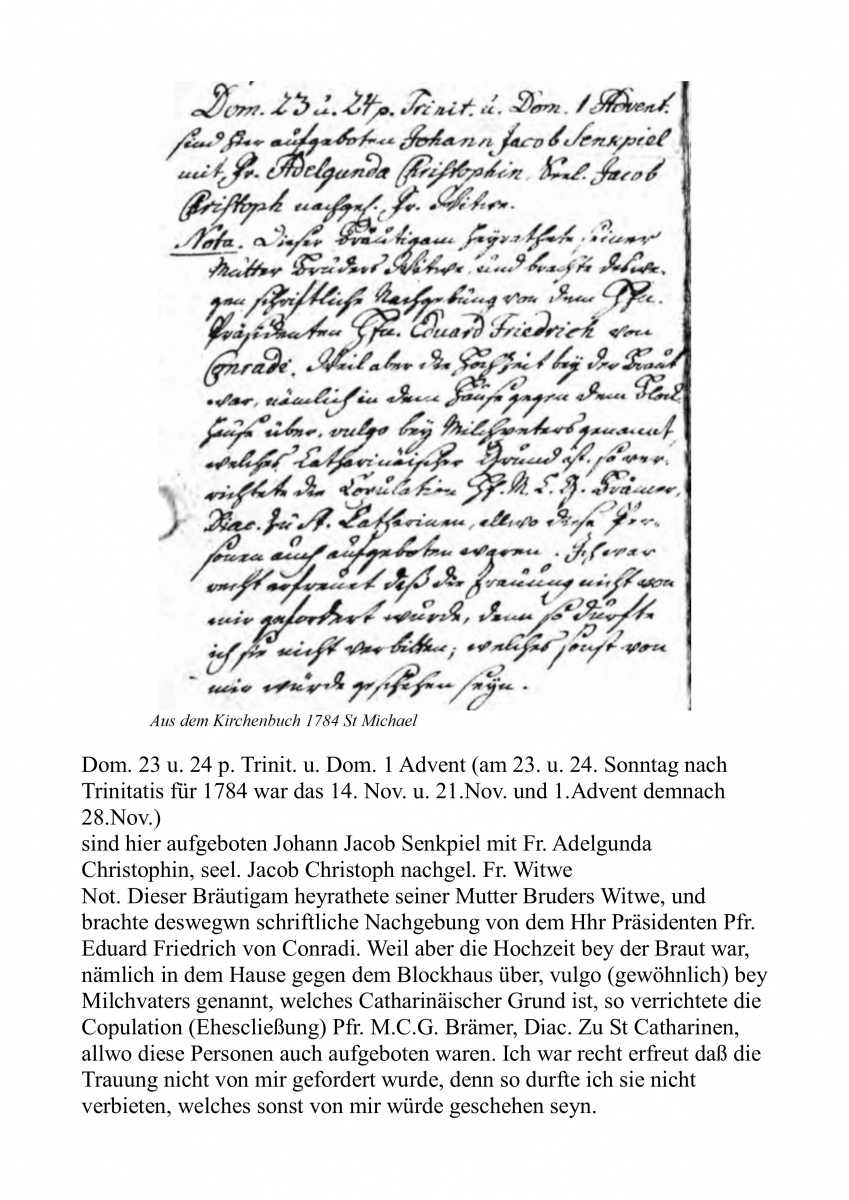 Dom. 23 u. 24 p. Trinit. u. Dom. 1 Advent.
sind hier aufgeboten Johann Jacob Senkpiel
mit Fr. Adelgunda Christophin, Seel. Jacob
Christoph nachgel. Fr. Witwe.
Nota. Dieser Bräutigam heyrathete seiner
Mutter Bruders Witwe, und brachte deswe-
gen schriftliche Nachgebung von dem Hhn.
Präsidenten Hhn. Eduard Friedrich von
Conradi. Weil aber die Hochzeit bey der Braut
war, nämlich in dem Hause gegen dem Block-
hause über, vulgo bey Milchvaters genannt,
welches Catharinäischer Grund ist, so ver-
richtete die Copulation H. M. C. G. Brämer,
Diac. zu St. Catharinen, allwo diese Per-
sonen auch aufgeboten waren. Ich war
recht erfreuet daß die Trauung nicht von
mir gefordert wurde, denn so durfte
ich sie nicht verbitten; welches sonst von
mir würde geschehen seyn.
Aus dem Kirchenbuch 1784 St Michael
Dom. 23 u. 24 p. Trinit. u. Dom. 1 Advent (am 23. u. 24. Sonntag nach
Trinitatis für 1784 war das 14. Nov. u. 21.Nov. und 1.Advent demnach
28.Nov.)
sind hier aufgeboten Johann Jacob Senkpiel mit Fr. Adelgunda
Christophin, seel. Jacob Christoph nachgel. Fr. Witwe
Not. Dieser Bräutigam heyrathete seiner Mutter Bruders Witwe, und
brachte deswegwn schriftliche Nachgebung von dem Hhr Präsidenten Pfr.
Eduard Friedrich von Conradi. Weil aber die Hochzeit bey der Braut war,
nämlich in dem Hause gegen dem Blockhaus über, vulgo (gewöhnlich) bey
Milchvaters genannt, welches Catharinäischer Grund ist, so verrichtete die
Copulation (Ehescließung) Pfr. M.C.G. Brämer, Diac. Zu St Catharinen,
allwo diese Personen auch aufgeboten waren. Ich war recht erfreut daß die
Trauung nicht von mir gefordert wurde, denn so durfte ich sie nicht
verbieten, welches sonst von mir würde geschehen seyn.